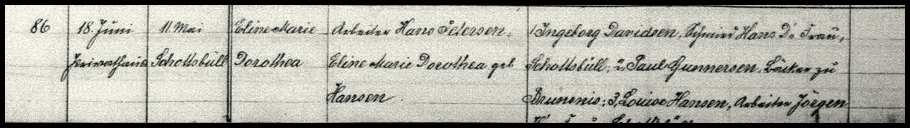 86 18. Juni 11. Mai Eline Marie Arbeiter Hans Petersen, 1, Ingeborg Davidsen, Schmied Hans D's Frau,
Privathaus Schottsbüll Dorothea Eline Marie Dorothea geb. Schottsbüll; 2, Paul Gunnersen, Bäcker zu
Hansen. Brunsnis; 3, Louise Hansen, Arbeiter Jörgen